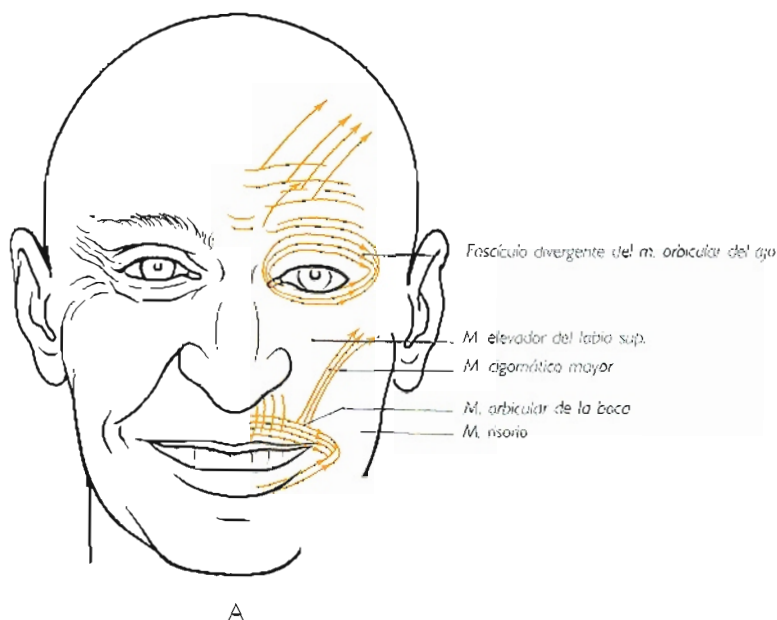 Fascículo divergente del m. orbicular del ojo
M. elevador del labio sup.
M. cigomático mayor
M. orbicular de la boca
M. risorio
A